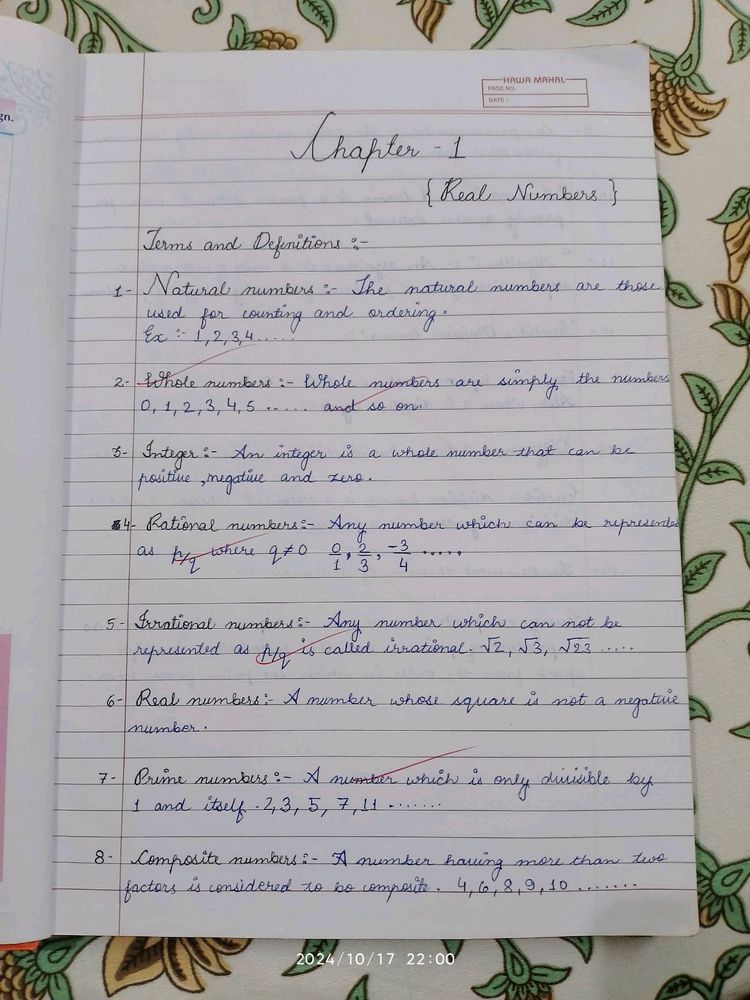 gn.
HAWA MAHAL
PAGE NO.
DATE :
Chapter - 1
{ Real Numbers }
Terms and Definitions :-
1- Natural numbers :- The natural numbers are those
used for counting and ordering.
Ex :- 1,2,3,4.....
2- Whole numbers :- Whole numbers are simply the numbers
0, 1, 2, 3, 4, 5 ...... and so on.
3- Integer :- An integer is a whole number that can be
positive, negative and zero.
4- Rational numbers :- Any number which can be represented
as p/q where q≠0 0/1, 2/3, -3/4 .....
5- Irrational numbers :- Any number which can not be
represented as p/q is called irrational. √2, √3, √23 .....
6- Real numbers :- A number whose square is not a negative
number.
7- Prime numbers :- A number which is only divisible by
1 and itself. 2,3, 5, 7, 11 .......
8- Composite numbers :- A number having more than two
factors is considered to be composite. 4, 6, 8, 9, 10 .......
2024/10/17 22:00